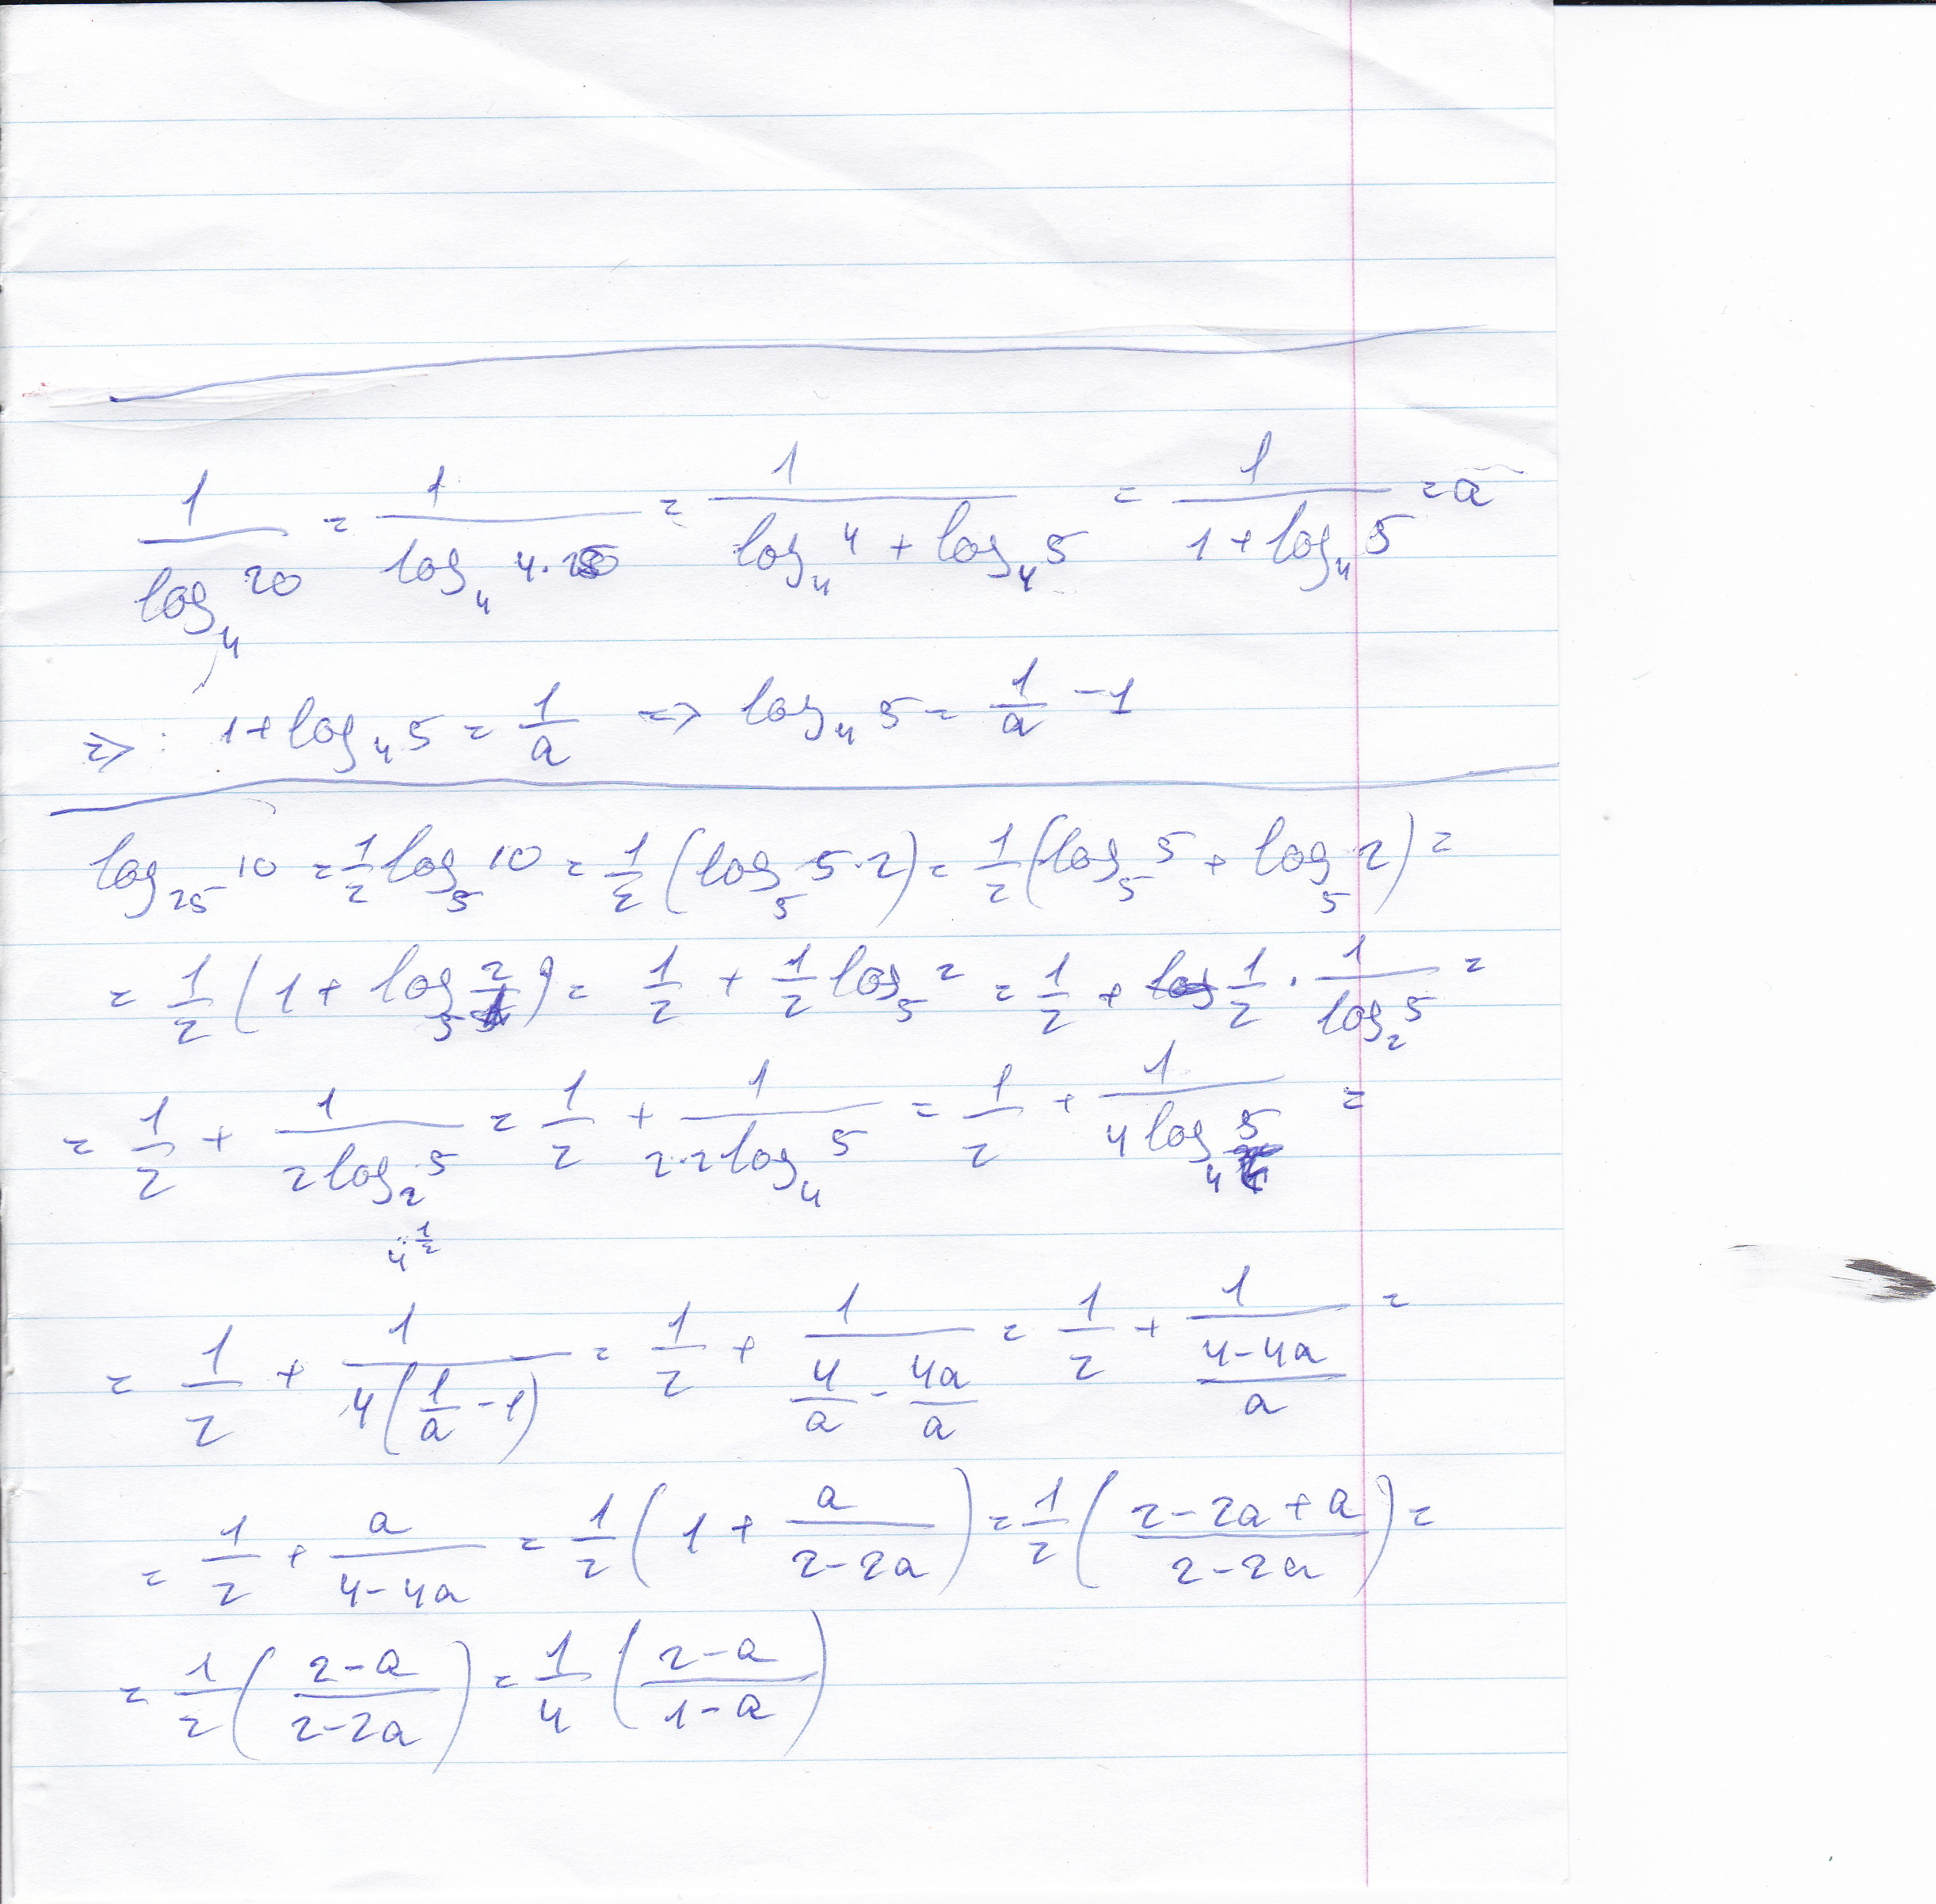 1/log₄ 20 = 1/log₄ 4·5 = 1/(log₄ 4 + log₄ 5) = 1/(1 + log₄ 5) = a
⇒: 1 + log₄ 5 = 1/a ⇒ log₄ 5 = 1/a − 1
log₂₅ 10 = 1/2 log₅ 10 = 1/2 (log₅ 5·2) = 1/2 (log₅ 5 + log₅ 2) =
= 1/2 (1 + log₅ 2) = 1/2 + 1/2 log₅ 2 = 1/2 + 1/2 · 1/log₂ 5 =
= 1/2 + 1/(2 log₂ 5) = 1/2 + 1/(2·2 log₄ 5) = 1/2 + 1/(4 log₄ 5) =
4^(1/2)
= 1/2 + 1/(4(1/a − 1)) = 1/2 + 1/(4/a − 4a/a) = 1/2 + 1/((4−4a)/a) =
= 1/2 + a/(4−4a) = 1/2 (1 + a/(2−2a)) = 1/2 ((2−2a+a)/(2−2a)) =
= 1/2 ((2−a)/(2−2a)) = 1/4 ((2−a)/(1−a))